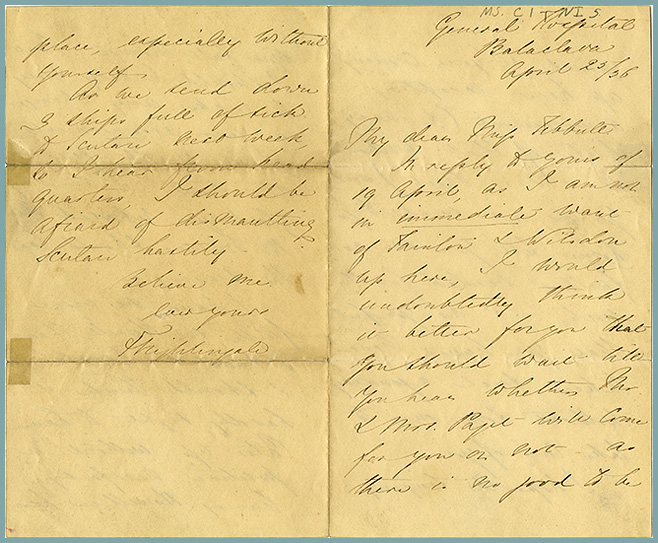 MS. C I NI 5
General Hospital
Balaclava
April 25/56
My dear Miss Tebbutt
In reply to yours of
19 April, as I am not
in immediate want
of Tainton & Wilsdon
up here, I would
undoubtedly think
it better for you that
you should wait till
you hear whether Mr.
& Mrs. Paget will come
for you or not as
there is no good to be
place, especially without
yourself
As we send down
3 ships full of sick
to Scutari next week
so I hear from head
quarters, I should be
afraid of dismantling
Scutari hastily
Believe me
ever yours
F Nightingale